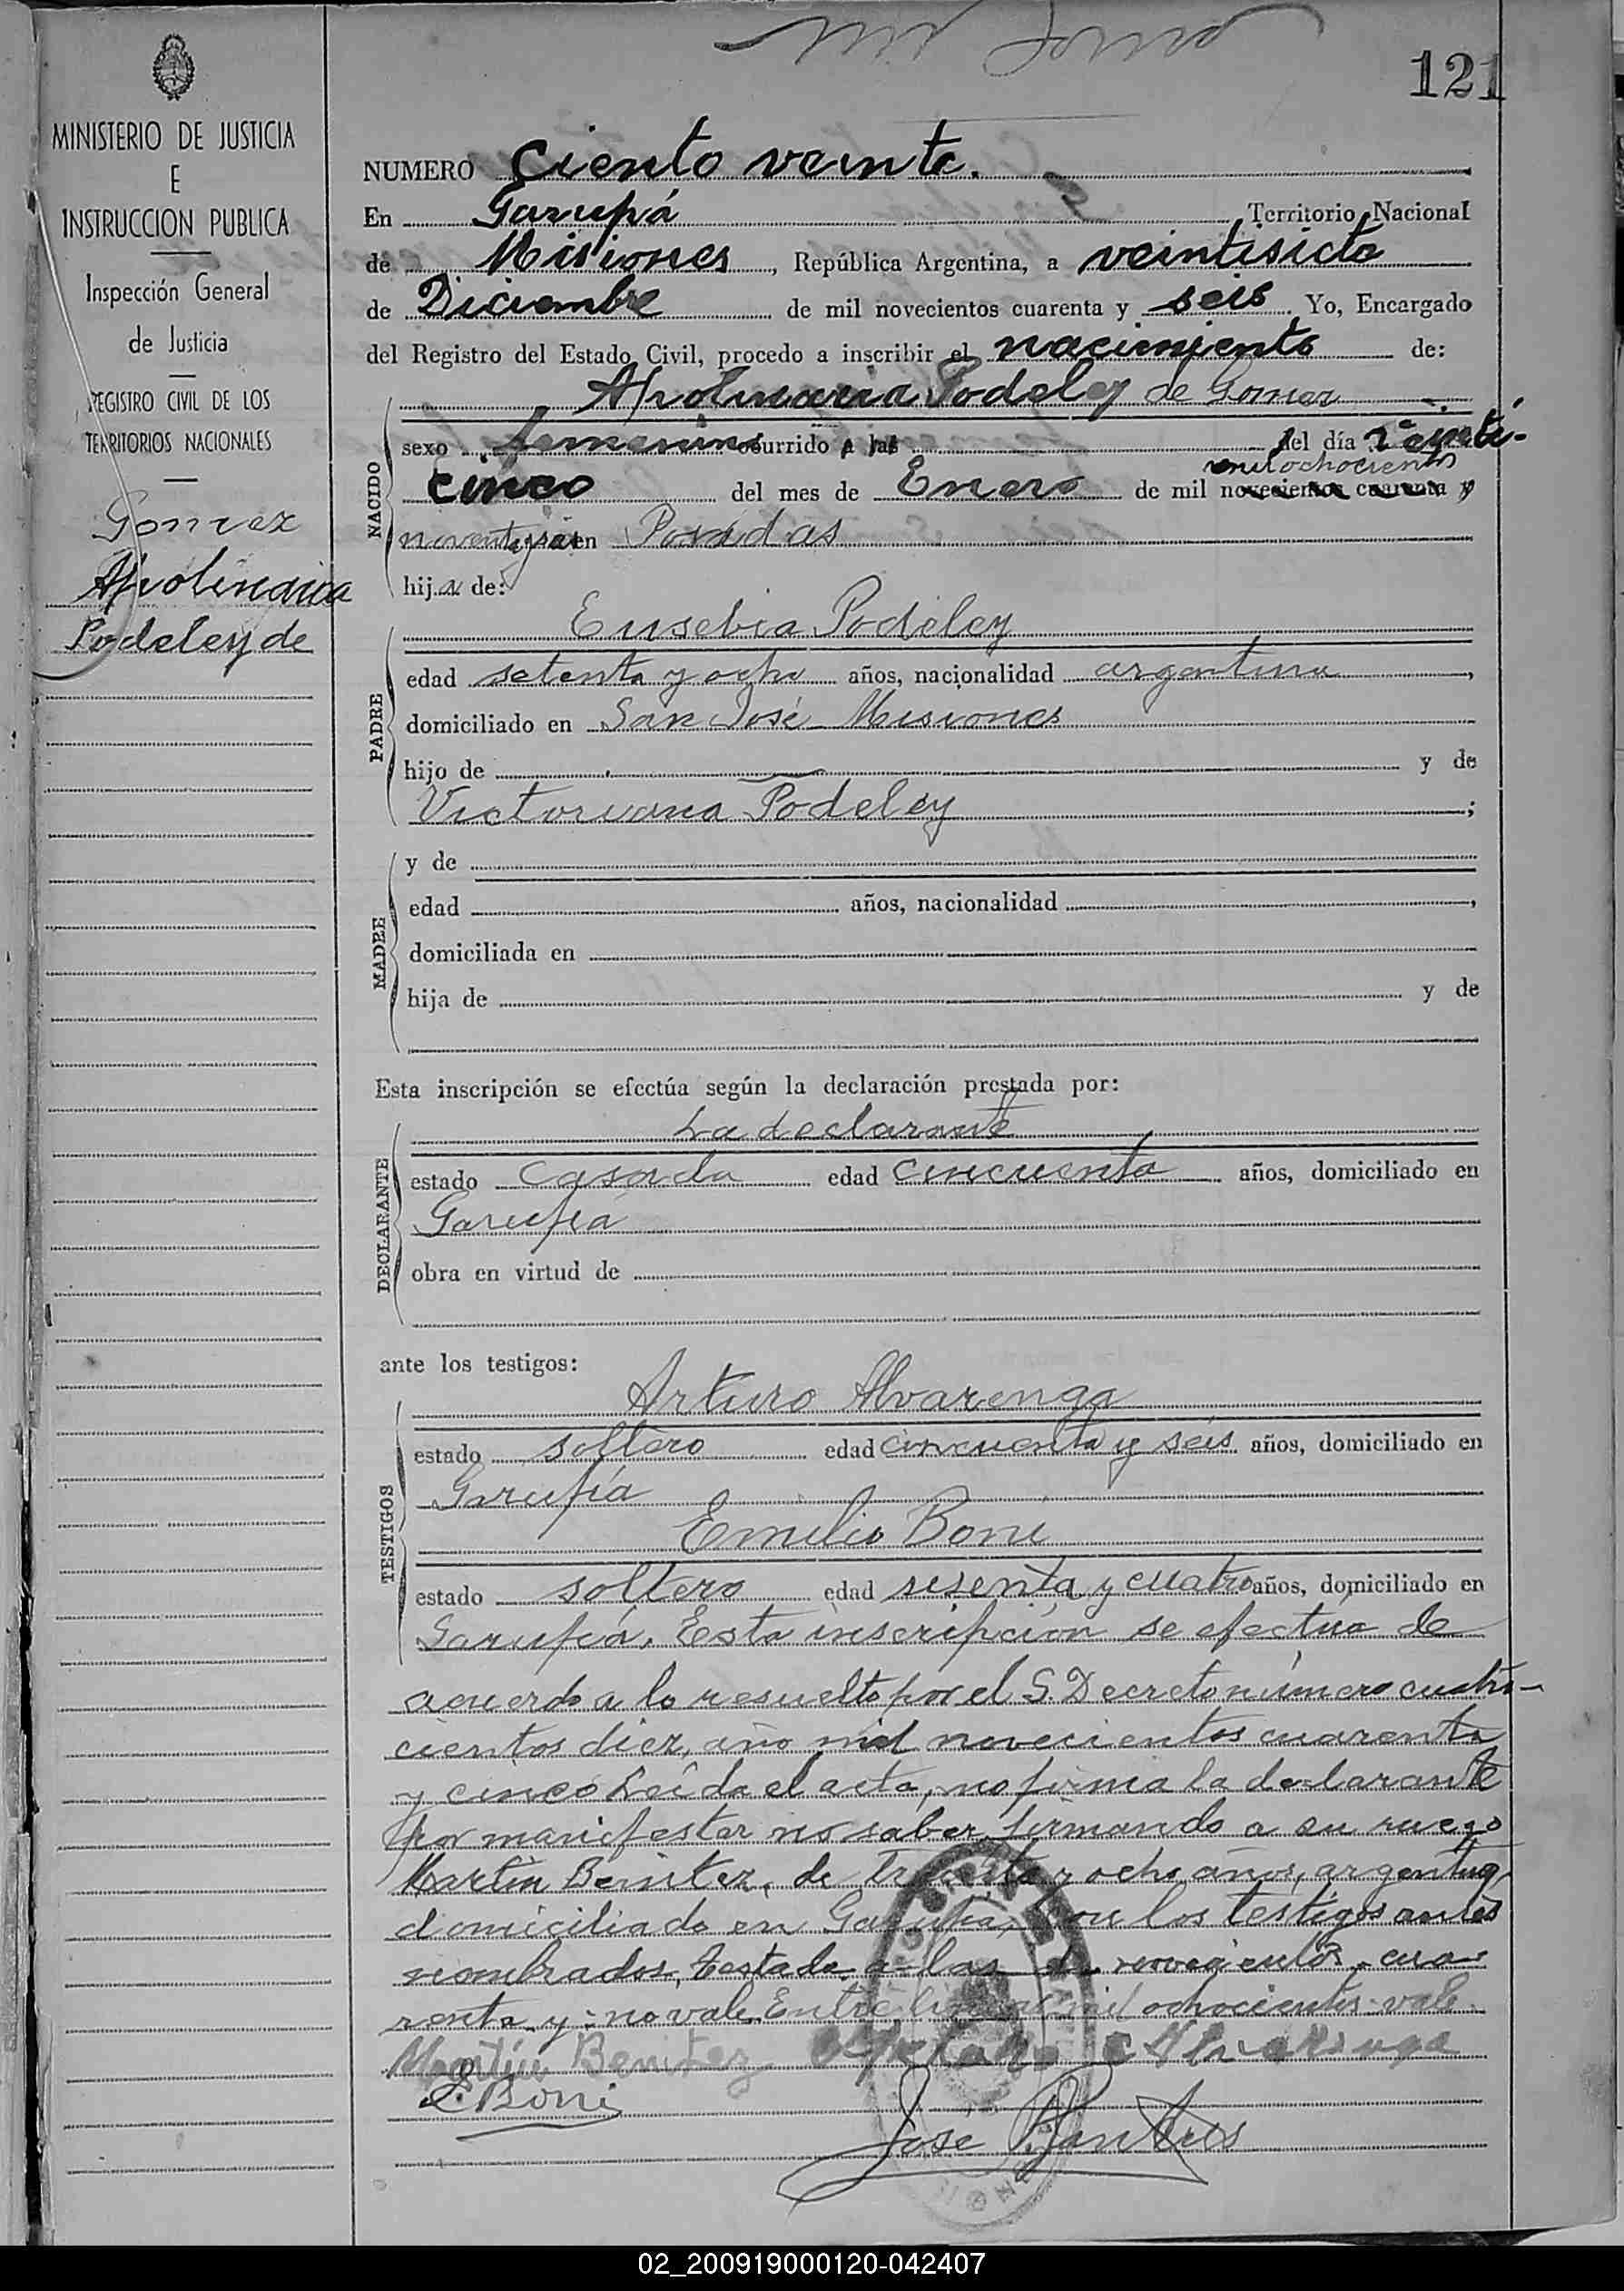 121
MINISTERIO DE JUSTICIA
E
INSTRUCCION PUBLICA
Inspección General
de Justicia
REGISTRO CIVIL DE LOS
TERRITORIOS NACIONALES
Gomez
Apolinaria
Podeley de
NUMERO Ciento veinte.
En Garupá Territorio Nacional
de Misiones, República Argentina, a veintisiete
de Diciembre de mil novecientos cuarenta y seis. Yo, Encargado
del Registro del Estado Civil, procedo a inscribir el nacimiento de:
Apolinaria Podeley de Gomez
NACIDO
sexo femenino ocurrido a las del día veinti-
mil ochocientos
cinco del mes de Enero de mil novecientos cuarenta y
noventa y seis en Posadas
hija de:
PADRE
Eusebia Podeley
edad setenta y ocho años, nacionalidad argentina,
domiciliado en San José Misiones
hijo de y de
Victoriana Podeley;
MADRE
y de
edad años, nacionalidad,
domiciliada en
hija de y de
Esta inscripción se efectúa según la declaración prestada por:
DECLARANTE
La declarante
estado casada edad cincuenta años, domiciliado en
Garupá
obra en virtud de
ante los testigos:
TESTIGOS
Arturo Alvarenga
estado soltero edad cincuenta y seis años, domiciliado en
Garupá
Emilio Boni
estado soltero edad sesenta y cuatro años, domiciliado en
Garupá. Esta inscripción se efectúa de
acuerdo a lo resuelto por el S. Decreto número cuatro-
cientos diez, año mil novecientos cuarenta
y cinco Leída el acta, no firma la declarante
por manifestar no saber, firmando a su ruego
Martín Benitez, de treinta y ocho años, argentino,
domiciliado en Garupá, con los testigos antes
nombrados, Testado a las novecientos cua-
renta y - no vale. Entre líneas mil ochocientos - vale.
Martín Benitez Arturo Alvarenga
E. Boni
José
02_200919000120-042407